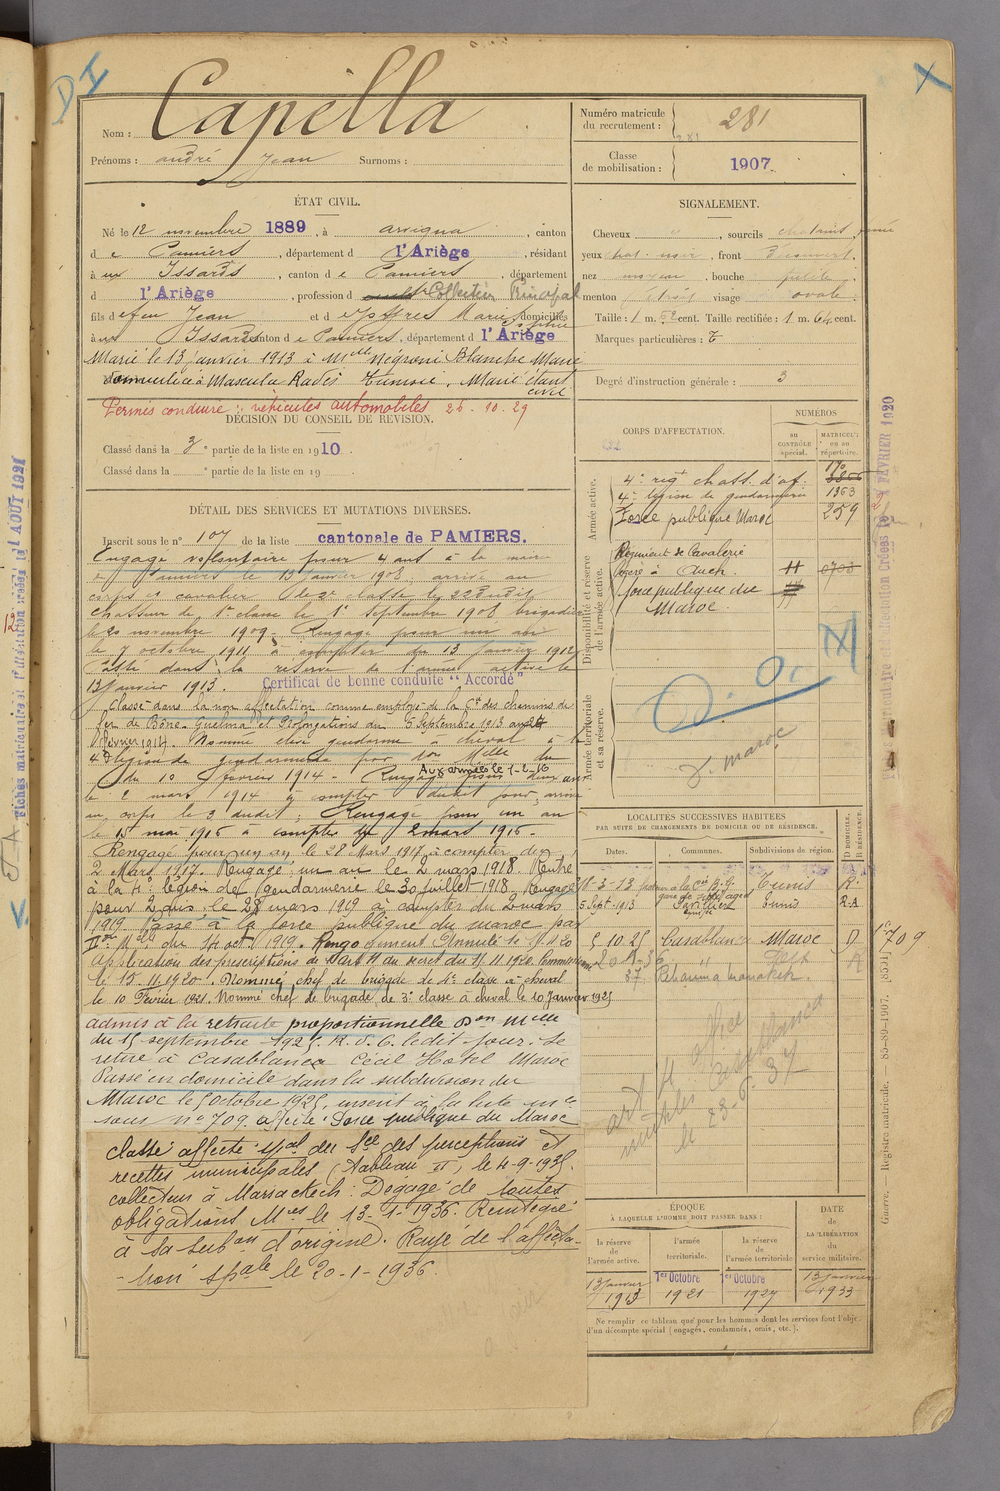 D I
Nom : Capella
Prénoms : andré Jean Surnoms :
Numéro matricule du recrutement : 281
Classe de mobilisation : 1907
ÉTAT CIVIL.
Né le 12 novembre 1889, à arvigna, canton
de Pamiers, département d l'Ariège, résidant
à aux Issards, canton de Pamiers, département
d l'Ariège, profession d Collecteur Principal
fils de feu Jean et de Peyres Marie Sophie domiciliés
à aux Issards canton de Pamiers, département d l'Ariège
Marié le 13 janvier 1913 à Mlle Negroni Blanche Marie
domiciliée à Mascula Radès Tunisie. Marié étant civil
Permis conduire : véhicules automobiles 26-10-29
SIGNALEMENT.
Cheveux , sourcils chatains
yeux chat. noir, front découvert
nez moyen, bouche petite
menton visage ovale.
Taille : 1 m. 62 cent. Taille rectifiée : 1 m. 64 cent.
Marques particulières :
Degré d'instruction générale : 3
DÉCISION DU CONSEIL DE RÉVISION.
Classé dans la 3e partie de la liste en 1910
Classé dans la e partie de la liste en 19
DÉTAIL DES SERVICES ET MUTATIONS DIVERSES.
Inscrit sous le n° 107 de la liste cantonale de PAMIERS.
Engagé volontaire pour 4 ans à la mairie
de Pamiers le 13 janvier 1908, arrivé au
corps et cavalier de 2e classe le 22 dudit
Chasseur de 1re classe le 1er Septembre 1908 brigadier
le 20 novembre 1909. Rengagé pour un an
le 7 octobre 1911 à compter du 13 janvier 1912
Passé dans la réserve de l'armée active le
13 janvier 1913. Certificat de bonne conduite "Accordé"
Classé dans la non affectation comme employé de la Cie des chemins de
fer de Bône-Guelma et Prolongations du 5 Septembre 1913 au 26
février 1914. Nommé élève gendarme à cheval à la
4e légion de gendarmerie par don Mlle du
du 10 février 1914 - Rengagé pour deux ans
Aux armées le 1-2-16
le 2 mars 1914 à compter dudit jour, arrivé
au corps le 3 dudit; Rengagé pour un an
le 15 mai 1916 à compter du 2 mars 1916.
Rengagé pour un an le 28 Mars 1917 à compter du
2 Mars 1917. Rengagé un an le 2 mars 1918. Rentré
à la 4e légion de Gendarmerie le 30 juillet 1918. Rengagé
pour 2 ans le 28 mars 1919 à compter du 2 mars
1919 Passé à la force publique du maroc par
Don Mlle du 14 oct. 1919. Rengagement Annulé le
application des prescriptions de l'art 11 du décret du 11.11.1920. Commissionné
le 15.11.1920. Nommé chef de brigade de 4e classe à cheval
le 10 Février 1921. Nommé chef de brigade de 3e classe à cheval le 10 Janvier 1925
admis à la retraite proportionnelle Don Mlle
du 15 septembre 1925. R. d. C. ledit jour. Se
retire à Casablanca Cecil Hotel Maroc
Passé en domicile dans la subdivision du
Maroc le 5 octobre 1925, inscrit à la liste mle
sous n° 709. affecté : Force publique du Maroc
classé affecté spal du Sce des perceptions et
recettes municipales (Tableau II), le 4-9-1935.
collecteur à Marrackech : Dégagé de toutes
obligations Mres le 13-1-1936. Réintégré
à sa subon d'origine. Rayé de l'affecta-
-tion spale le 20-1-1936.
CORPS D'AFFECTATION.
NUMÉROS
au CONTRÔLE spécial.
MATRICULE ou au répertoire.
Armée active.
4e régt chass. d'af.
4e légion de gendarmerie 1363
Force publique Maroc 259
Disponibilité et réserve de l'armée active.
Régiment de Cavalerie
légère à Auch.
force publique du
Maroc
Armée territoriale et sa réserve.
f. maroc
LOCALITÉS SUCCESSIVES HABITÉES
PAR SUITE DE CHANGEMENTS DE DOMICILE OU DE RÉSIDENCE.
Dates. Communes. Subdivisions de région. D DOMICILE. R RÉSIDENCE.
18-3-13 Tunis R.
5 Sept. 1913 Tunis R.A
5.10.25 Casablanca Maroc D 709
art pl office
Casablanca
le 23-6-37
ÉPOQUE
À LAQUELLE L'HOMME DOIT PASSER DANS :
la réserve de l'armée active.
l'armée territoriale.
la réserve de l'armée territoriale
DATE de LA LIBÉRATION du service militaire.
13 janvier 1913
1er Octobre 1921
1er Octobre 1927
13 janvier 1933
Ne remplir ce tableau que pour les hommes dont les services font l'objet
d'un décompte spécial (engagés, condamnés, omis, etc.).
Guerre. — Registre matricule. — 85-89-1907.